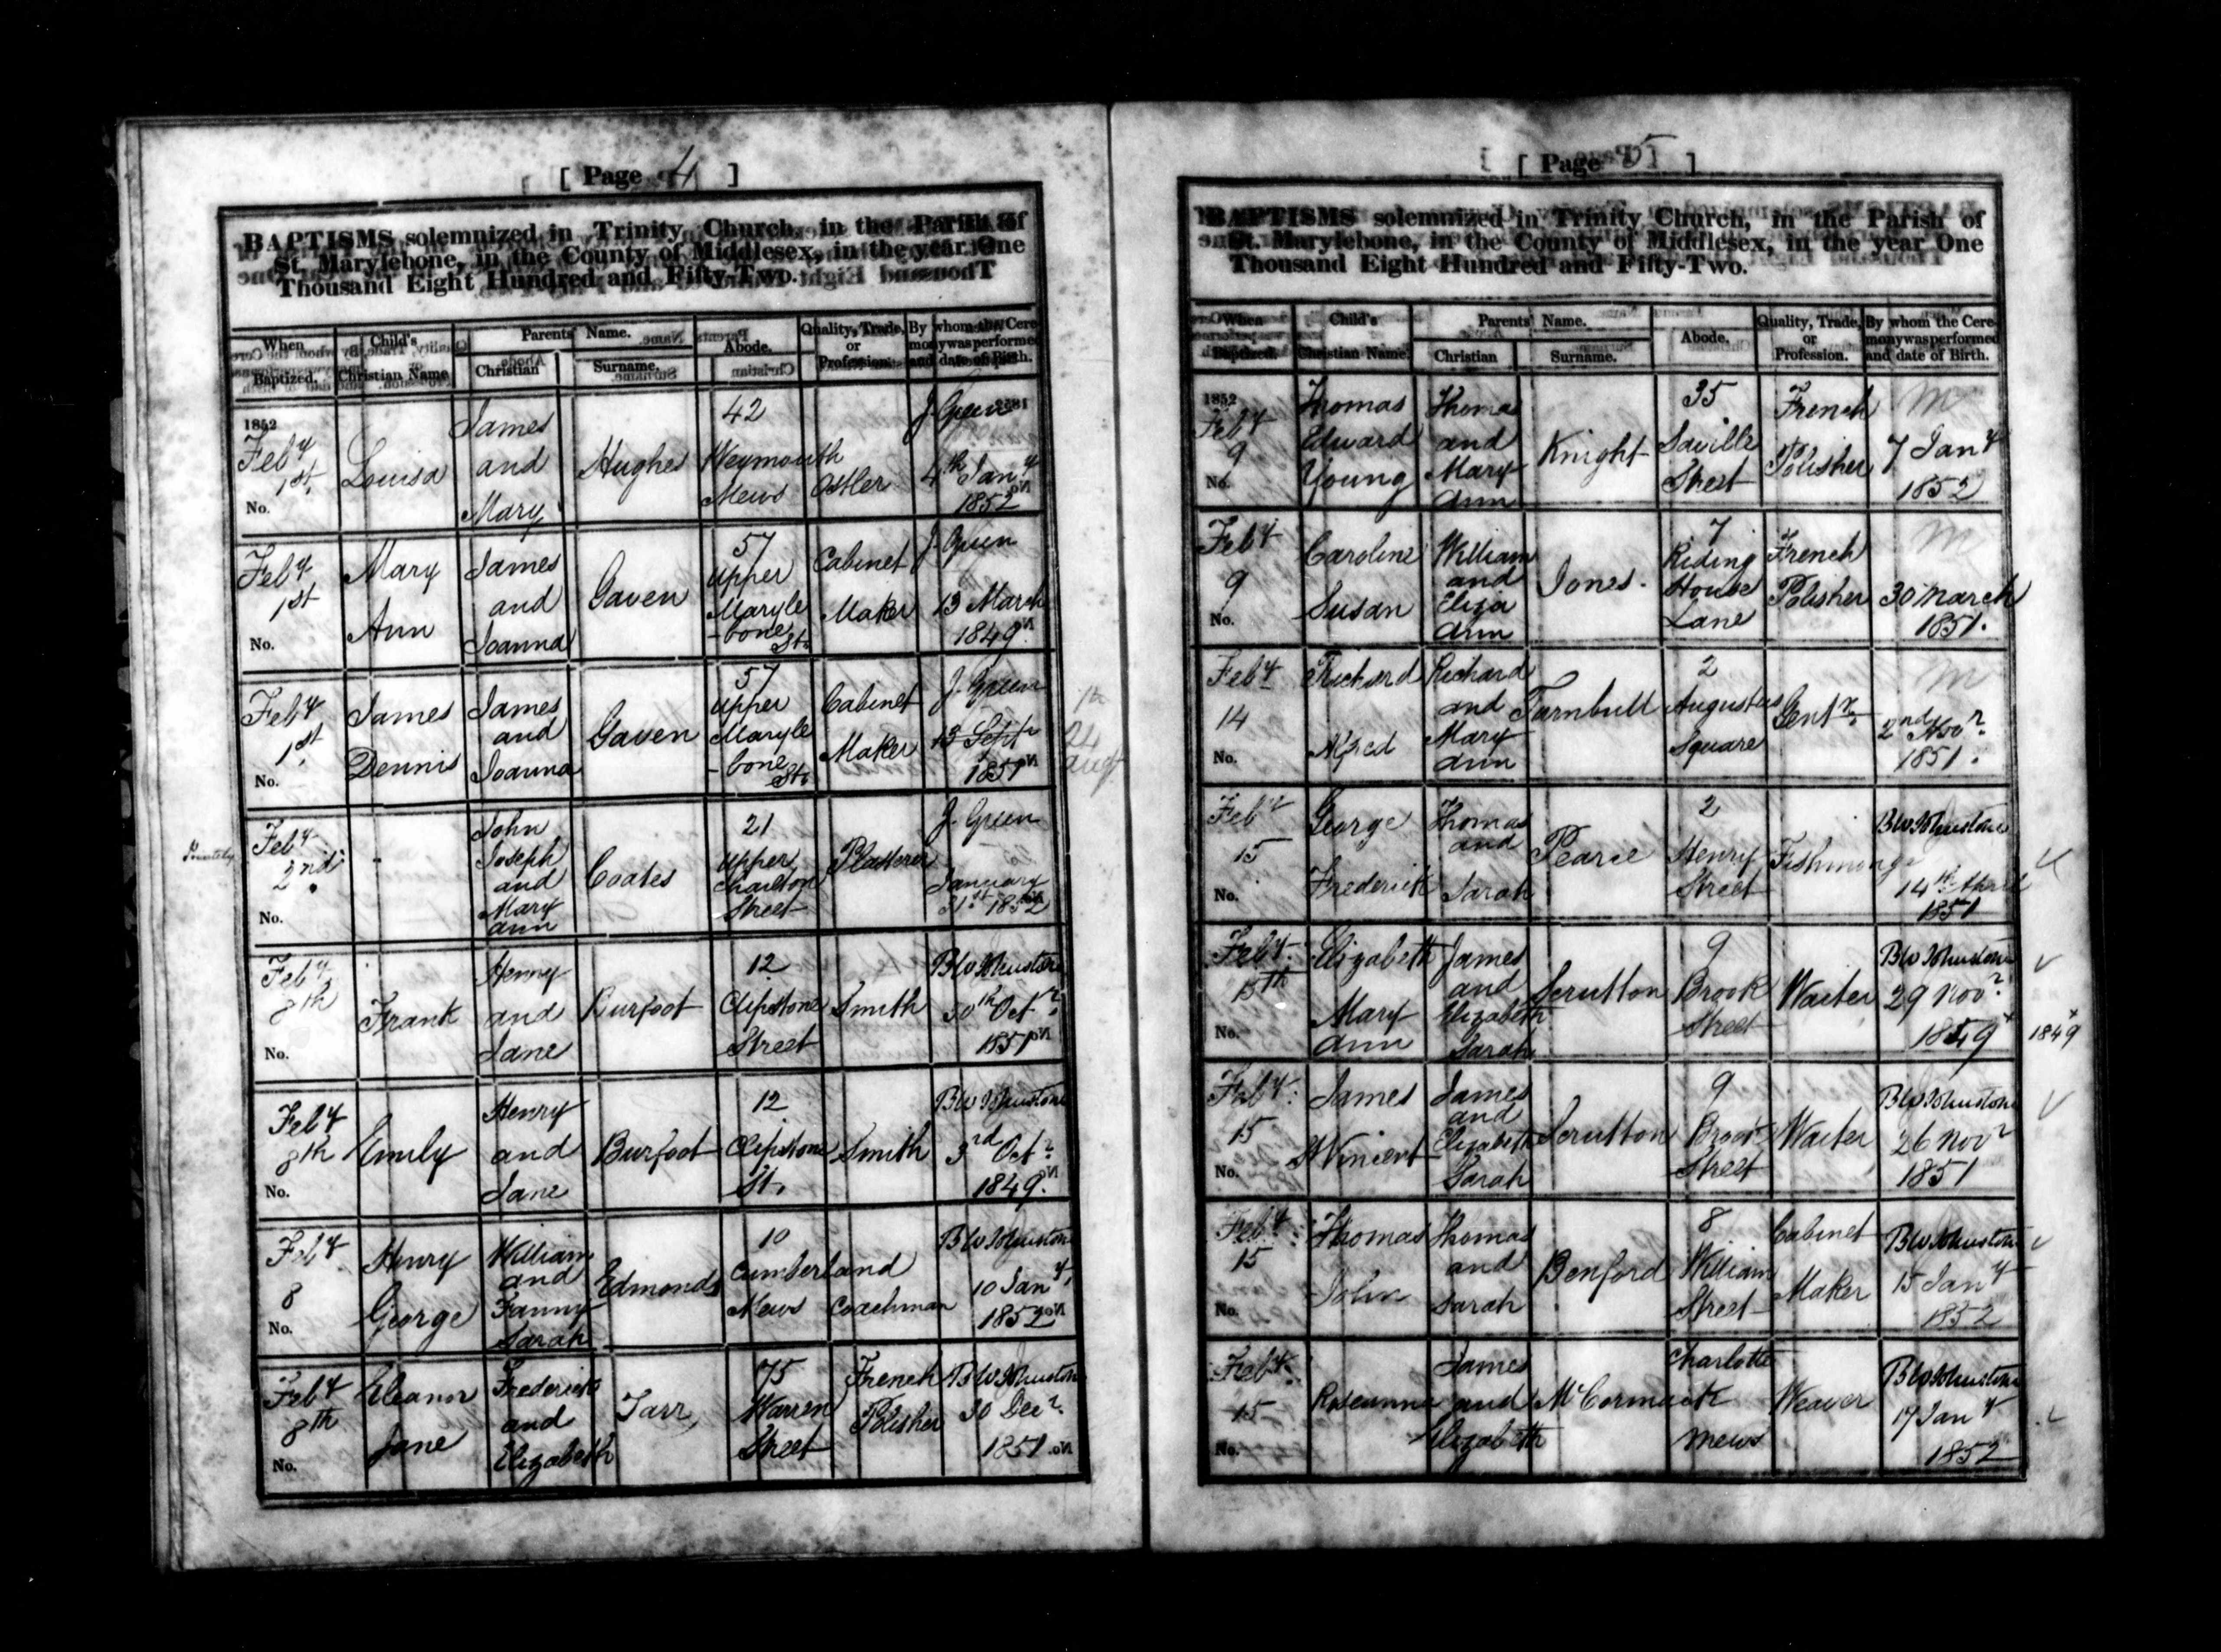 [ Page 4 ]
BAPTISMS solemnized in Trinity Church, in the Parish of
St. Marylebone, in the County of Middlesex, in the year One
Thousand Eight Hundred and Fifty-Two.
When Baptized. Child's Christian Name Parents' Name. Christian Surname. Abode. Quality, Trade, or Profession. By whom the Ceremony was performed and date of Birth.
1852 Feby 1st. No. Louisa James and Mary Hughes 42 Weymouth Mews Ostler J. Green 4th Jany 1852
Feby 1st No. Mary Ann James and Joanna Gaven 57 Upper Maryle-bone St. Cabinet Maker J. Green 13 March 1849
Feby 1st No. James Dennis James and Joanna Gaven 57 Upper Maryle-bone St. Cabinet Maker J. Green 13 Septr 1851 24 augt
Privately Feby 2nd. No. - John Joseph and Mary Ann Coates 21 Upper Charlton Street Plasterer J. Green January 31st 1852
Feby 8th No. Frank Henry and Jane Burfoot 12 Clipstone Street Smith BW Johnstone 30th Octr. 1851
Feby 8th No. Emily Henry and Jane Burfoot 12 Clipstone St. Smith BW Johnstone 3rd Octr. 1849.
Feby 8 No. Henry George William and Fanny Sarah Edmonds 10 Cumberland Mews Coachman BW Johnstone 10 Jany 1852
Feby 8th No. Eleanor Jane Frederick and Elizabeth Tarr 75 Warren Street French Polisher BW Johnstone 30 Decr. 1851
[ Page 5 ]
BAPTISMS solemnized in Trinity Church, in the Parish of
St. Marylebone, in the County of Middlesex, in the year One
Thousand Eight Hundred and Fifty-Two.
When Baptized. Child's Christian Name. Parents' Name. Christian Surname. Abode. Quality, Trade, or Profession. By whom the Ceremony was performed and date of Birth.
1852 Feby 9 No. Thomas Edward Young Thomas and Mary Ann Knight 35 Saville Street French Polisher M 7 Jany 1852
Feby 9 No. Caroline Susan William and Eliza Ann Jones. 7 Riding House Lane French Polisher M 30 March 1851.
Feby 14 No. Richard Alfred Richard and Mary Ann Turnbull 2 Augustus Square Gentn. M 2nd Novr. 1851.
Feby 15 No. George Frederick Thomas and Sarah Pearce 2 Henry Street Fishmonger BW Johnstone 14th April 1851
Feby. 15th No. Elizabeth Mary Ann James and Elizabeth Sarah Scrutton 9 Brook Street Waiter BW Johnstone 29 Novr. 1849 1849
Feby. 15 No. James Vincent James and Elizabeth Sarah Scrutton 9 Brook Street Waiter BW Johnstone 26 Novr 1851
Feby. 15 No. Thomas John Thomas and Sarah Benford 8 William Street Cabinet Maker BW Johnstone 15 Jany 1852
Feby. 15 No. Roseanna James and Elizabeth McCormack Charlotte Mews Weaver BW Johnstone 17 Jany 1852